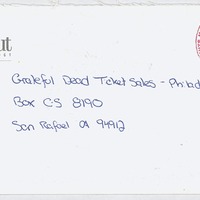 ut
Grateful Dead Ticket Sales - Philad
Box CS 8190
San Rafael CA 94912